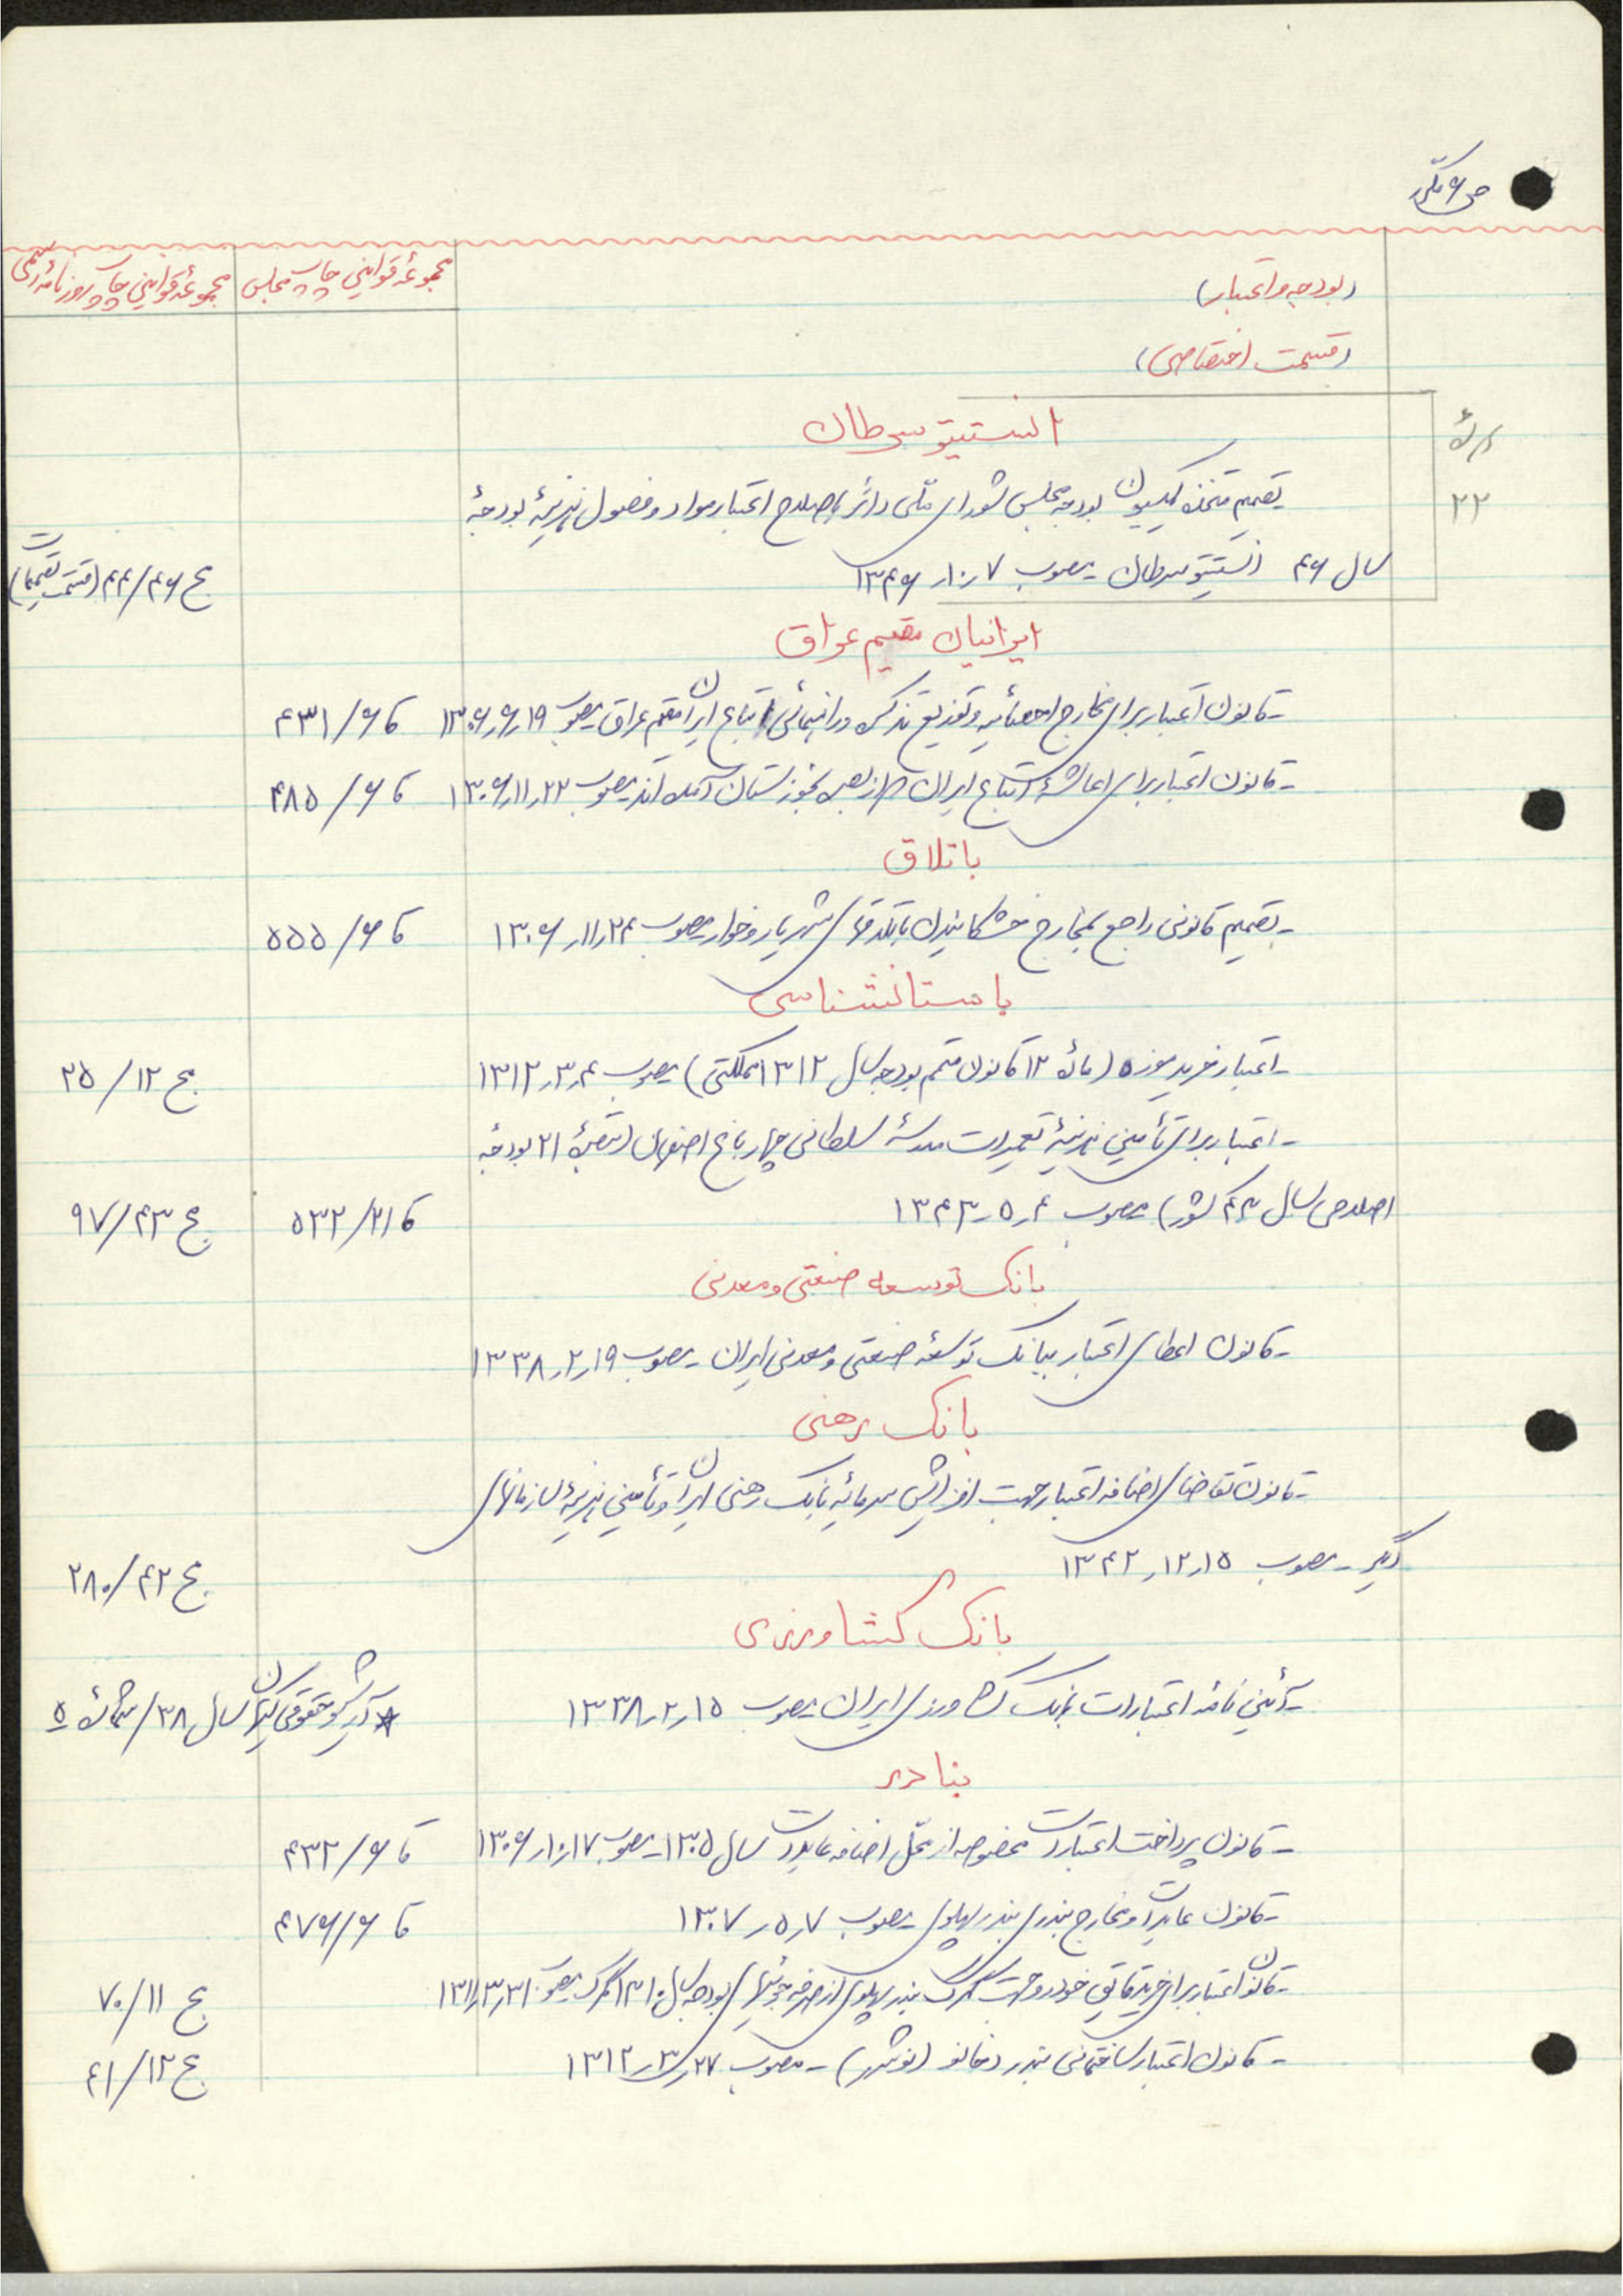 ص ۶ مکرر
(بودجه و اعتبار)
مجموعهٔ قوانین چاپ مجلس
مجموعهٔ قوانین چاپ روزنامهٔ رسمی
(قسمت اختصاصی)
انستیتو سرطان
تصمیم متخذه کمیسیون بودجه مجلس شورای ملی دائر باصلاح اعتبار مواد و فصول هزینهٔ بودجهٔ
۲۲
سال ۴۶ انستیتو سرطان - مصوب ۷ر۱۰ر۱۳۴۶ ج ۴۶/۴۴ (قسمت تصمیمات)
ایرانیان مقیم عراق
- قانون اعتبار برای مخارج احصائیه و توزیع تذکره و راهنمائی اتباع ایران مقیم عراق مصوب ۱۹ر۹ر۱۳۰۶ کا ۶/۴۳۱
- قانون اعتبار برای اعاشهٔ اتباع ایران که از بصره بخوزستان آمده‌اند مصوب ۲۲ر۱۱ر۱۳۰۶ کا ۶/۴۸۵
باتلاق
- تصمیم قانونی راجع بمخارج خشکانیدن باتلاقهای شهریار و خوار مصوب ۲۴ر۱۱ر۱۳۰۶ کا ۶/۵۵۵
باستانشناسی
- اعتبار خرید موزه (مادهٔ ۱۲ قانون متمم بودجه سال ۱۳۱۲ مملکتی) مصوب ۴ر۳ر۱۳۱۲ ج ۱۲/۲۵
- اعتبار برای تأمین هزینهٔ تعمیرات مدرسهٔ سلطانی چهارباغ اصفهان (تبصرهٔ ۲۱ بودجهٔ
اصلاحی سال ۴۳ کشور) مصوب ۴ر۵ر۱۳۴۳ کا ۲۱/۵۳۲ ج ۴۳/۹۷
بانک توسعه صنعتی و معدنی
- قانون اعطای اعتبار ببانک توسعهٔ صنعتی و معدنی ایران - مصوب ۱۹ر۲ر۱۳۳۸
بانک رهنی
- قانون تقاضای اضافه اعتبار جهت افزایش سرمایهٔ بانک رهنی ایران و تأمین هزینهٔ سازمانهای
دیگر - مصوب ۱۵ر۱۲ر۱۳۴۲ ج ۴۲/۲۸۰
بانک کشاورزی
- آئین نامهٔ اعتبارات بانک کشاورزی ایران مصوب ۱۵ر۲ر۱۳۳۸ * آرشیو حقوقی کیهان سال ۳۸/شمارهٔ ۵
بنادر
- قانون پرداخت اعتبارات مخصوصه از محل اضافه عایدات سال ۱۳۰۵ - مصوب ۱۷ر۱۰ر۱۳۰۶ کا ۶/۴۳۲
- قانون عایدات و مخارج بندری بندر پهلوی مصوب ۷ر۵ر۱۳۰۷ کا ۶/۴۷۶
- قانون اعتبار برای خرید قایق خودرو جهت گمرک بندر پهلوی از صرفه جوئیهای بودجه سال ۱۳۱۰ گمرک مصوب ۳۱ر۳ر۱۳۱۱ ج ۱۱/۷۰
- قانون اعتبار ساختمانی بندر دخانو (نوشهر) - مصوب ۲۷ر۳ر۱۳۱۲ ج ۱۲/۴۱